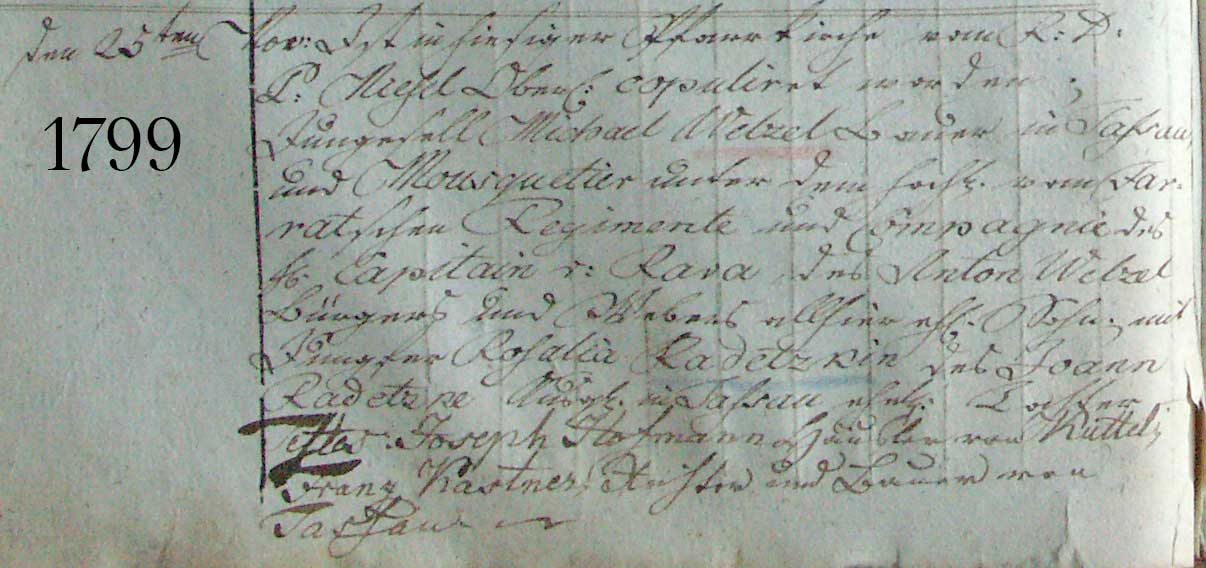 den 25ten Nov: Ist in hiesiger Pfarrkirche vom R: D.
1799
P: Niesel Oberc: copuliret worden,
Jungesell Michael Welzel Bauer in Tassau,
und Mousquetier unter dem hochl. vom Jar-
ratschen Regimente und Compagnie des
H. Capitain v: Rava des Anton Welzel
Bürgers und Webers allhier ehl. Sohn; mit
Jungfer Rosalia Radetzkin des Joann
Radetzke in Tassau ehel: Tochter
Testes: Joseph Hofmann Häusler von Kuttel;
Franz Kastner, Richter und Bauer von
Tassau.